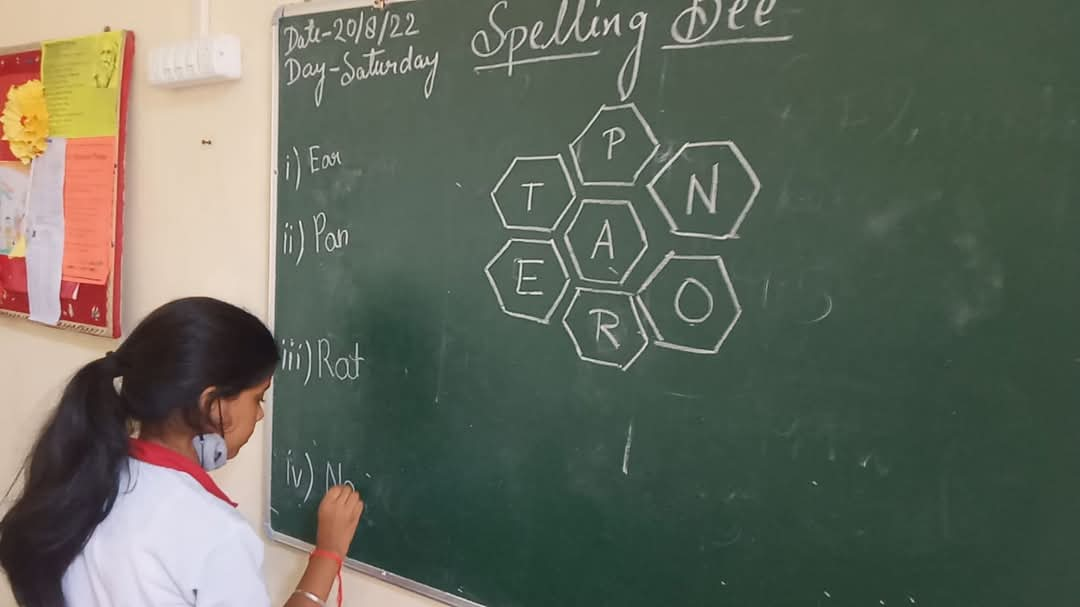 Date-20/8/22
Day-Saturday
Spelling Bee
i) Ear
ii) Pan
iii) Rat
iv) N
P
T
N
A
E
O
R